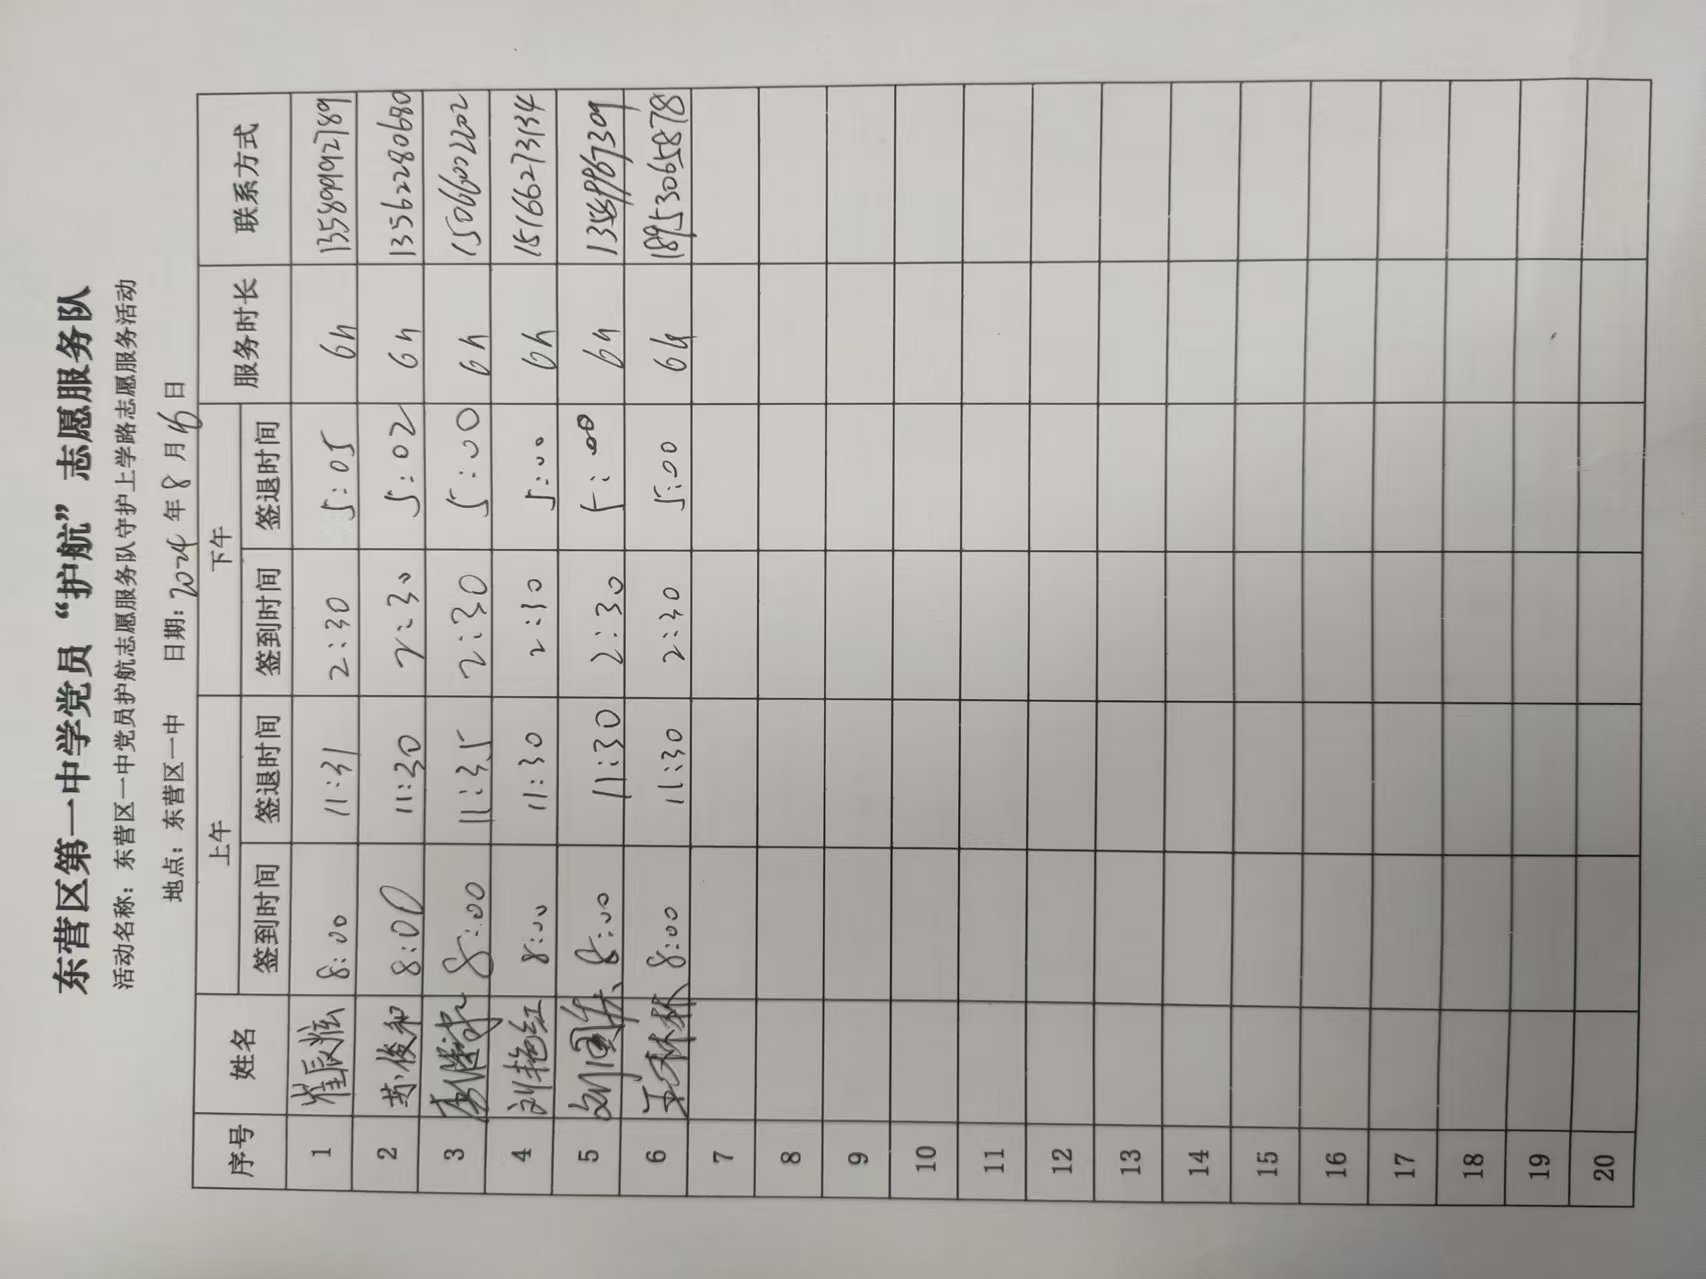 东营区第一中学党员“护航”志愿服务队
活动名称：东营区一中党员护航志愿服务队守护上学路志愿服务活动
地点：东营区一中 日期：2024年8月16日
序号 姓名 上午 下午 服务时长 联系方式
签到时间 签退时间 签到时间 签退时间
1 崔辰炫 8:00 11:31 2:30 5:05 6h 13589992789
2 苏俊和 8:00 11:30 2:30 5:02 6h 13562280680
3 8:00 11:35 2:30 5:00 6h 15066002202
4 刘艳红 8:00 11:30 2:30 5:00 6h 15166273134
5 8:00 11:30 2:30 5:00 6h
6 8:00 11:30 2:30 5:00 6h 18953065878
7
8
9
10
11
12
13
14
15
16
17
18
19
20